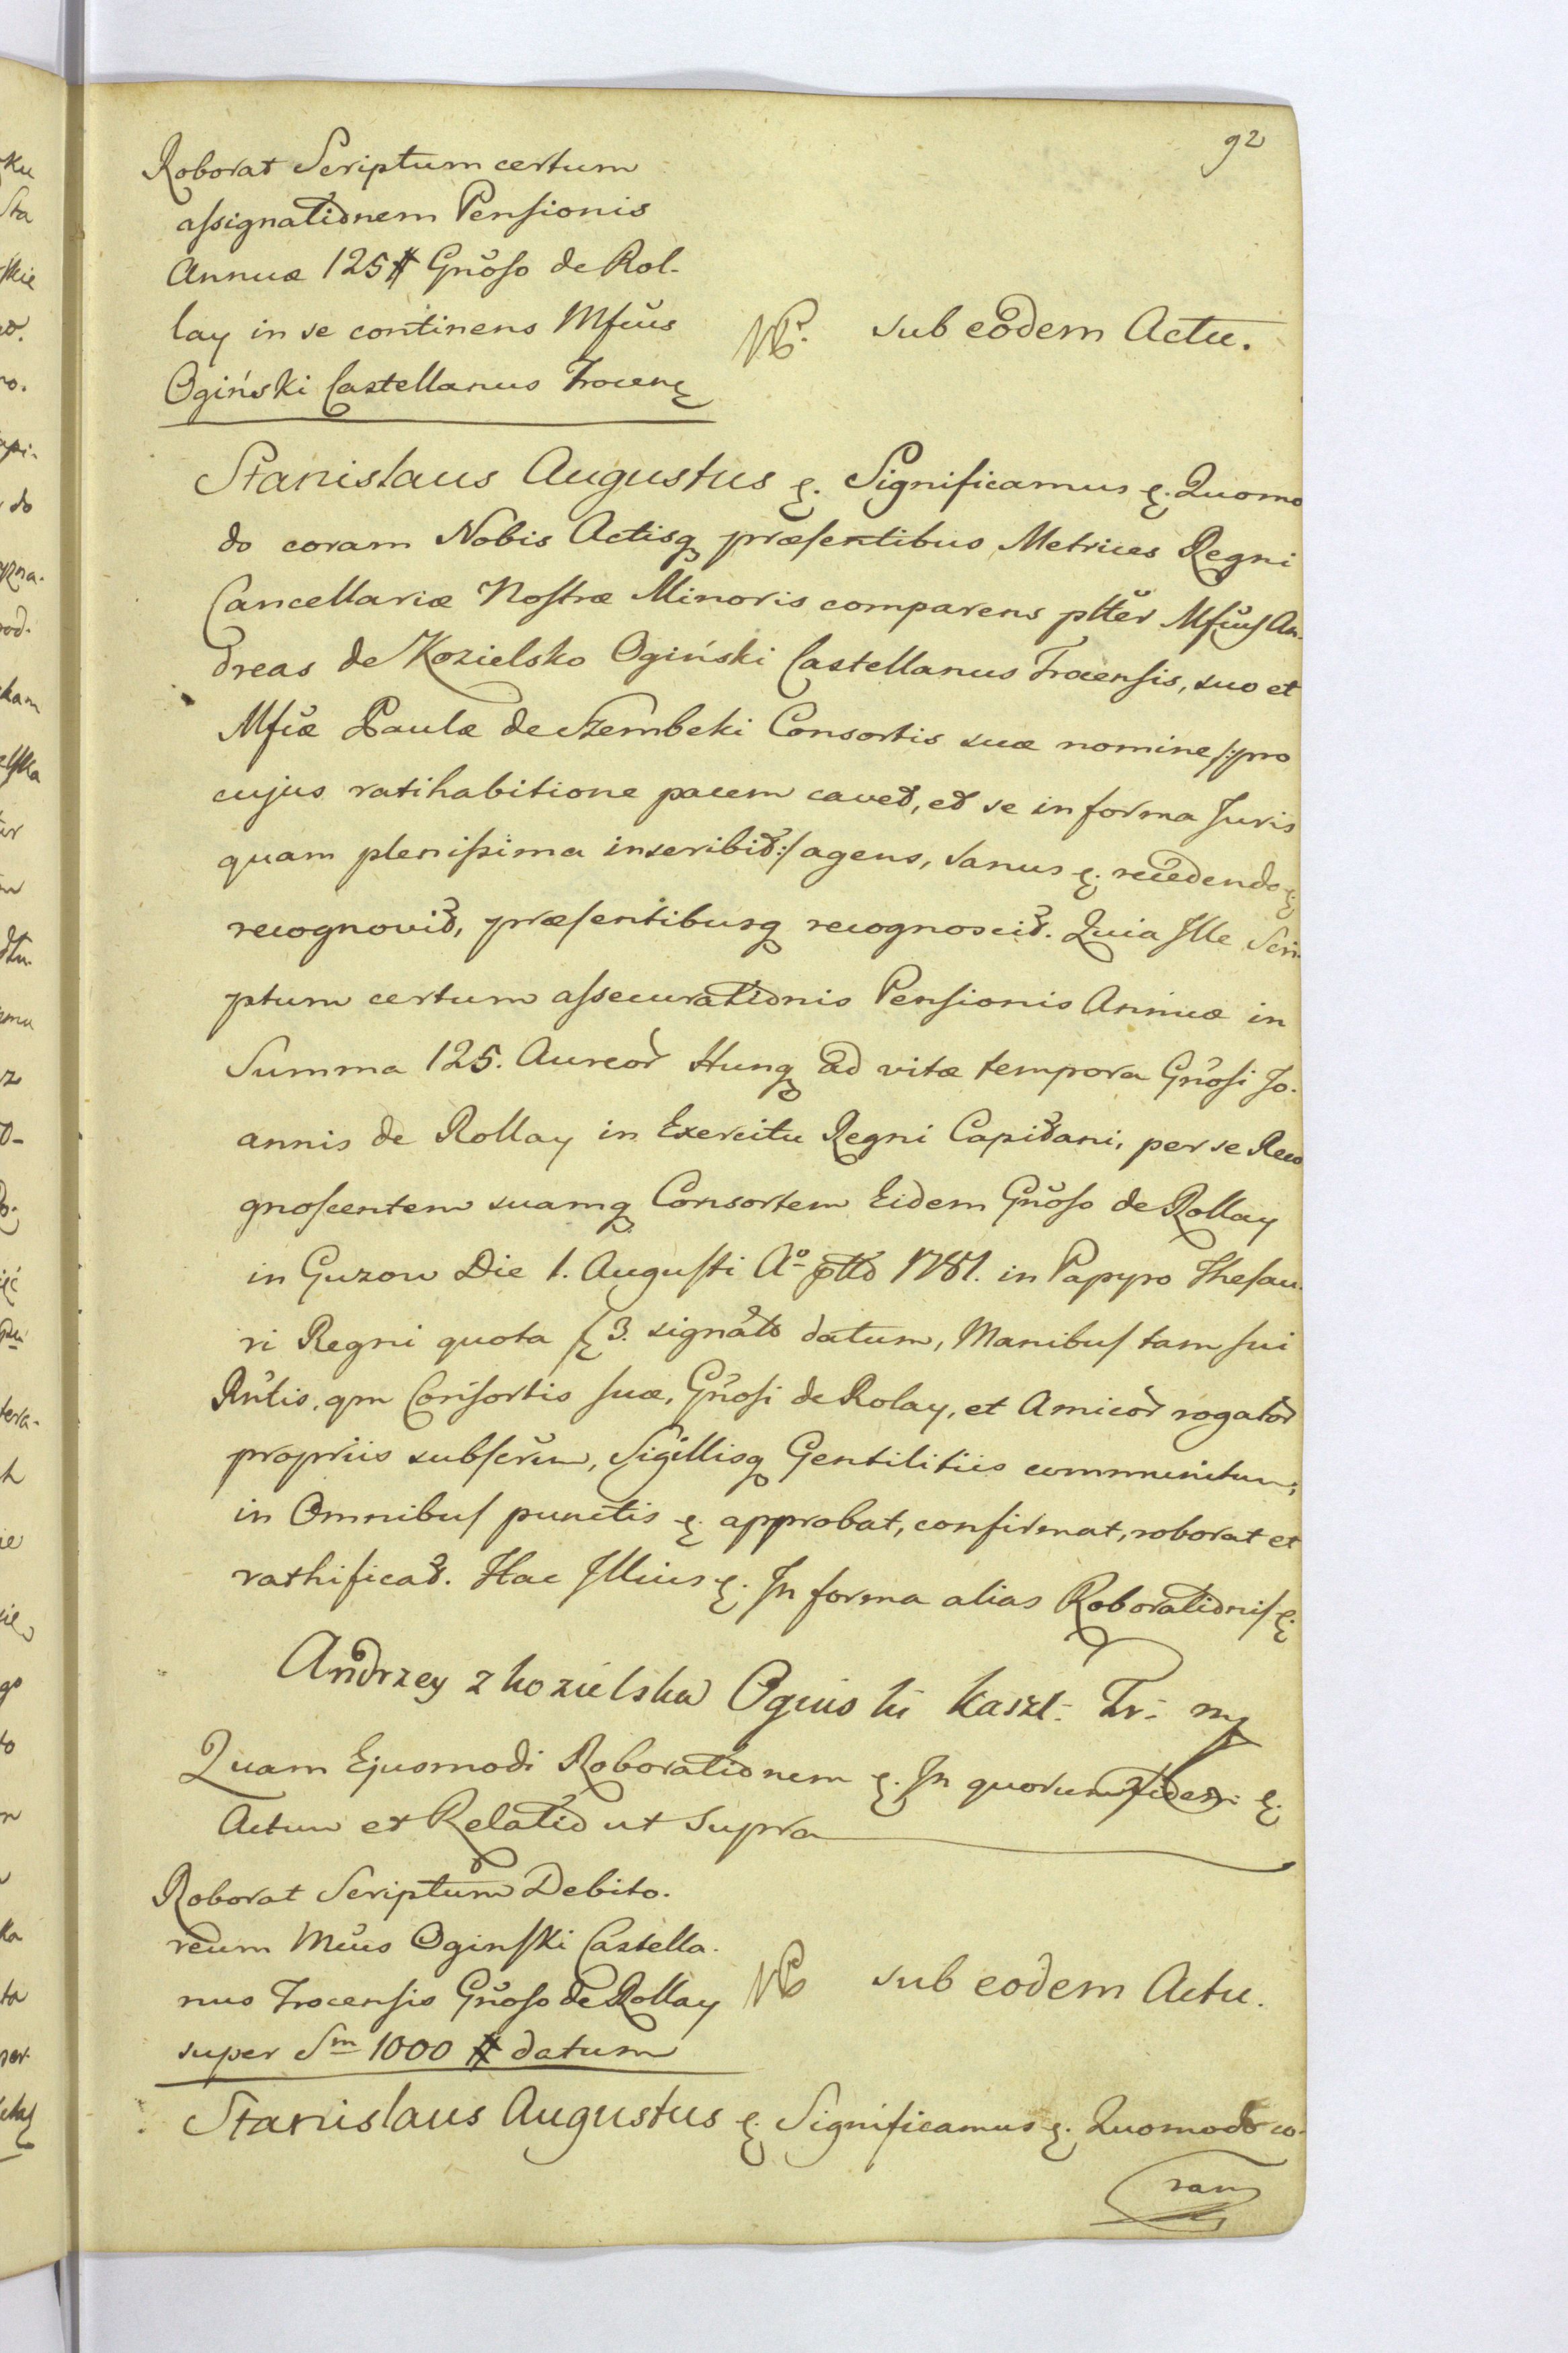 92
Roborat Scriptum certum
assignationem Pensionis
Annuæ 125 # Gnoso de Rol-
lay in se continens Mfcus
Ogiński Castellanus Trocen
sub eodem Actu.
Stanislaus Augustus &. Significamus &. Quomo
do coram Nobis Actisq præsentibus Metrices Regni
Cancellariæ Nostræ Minoris comparens pltter Mfcus An-
dreas de Kozielsko Ogiński Castellanus Trocensis, suo et
Mfcæ Paulæ de Szembeki Consortis suæ nomine /: pro
cujus ratihabitione pacem cavet, et se in forma Juris
quam plenissima inscribit :/ agens, sanus &. recedendo &
recognovit, præsentibusq recognoscit. Quia Ille Scri-
ptum certum assecurationis Pensionis Annuæ in
Summa 125. Aureor Hung ad vitæ tempora Gnosi Jo-
annis de Rollay in Exercitu Regni Capitani, per se Reco
gnoscentem suamq Consortem Eidem Gnoso de Rollay
in Guzow Die 1. Augusti Aº pttto 1781. in Papyro Thesau-
ri Regni quota 3. signato datum, Manibus tam sui
Rntis, qm Consortis suæ, Gnosi de Rolay, et Amicor rogator
propriis subscrum, Sigillisq Gentilitiis communitum,
in Omnibus punctis &. approbat, confirmat, roborat et
rathificat. Hac Illius &. In forma alias Roborationis &.
Andrzey z kozielska Oginski kaszt: Tr: mp
Quam Ejusmodi Roborationem &. In quorum fidem &.
Actum et Relatio ut supra
Roborat Scriptum Debito-
reum Mcus Oginski Castella-
nus Trocensis Gnoso de Rollay
super Sm 1000 # datum
sub eodem Actu.
Stanislaus Augustus &. Significamus &. Quomodo co-
ram